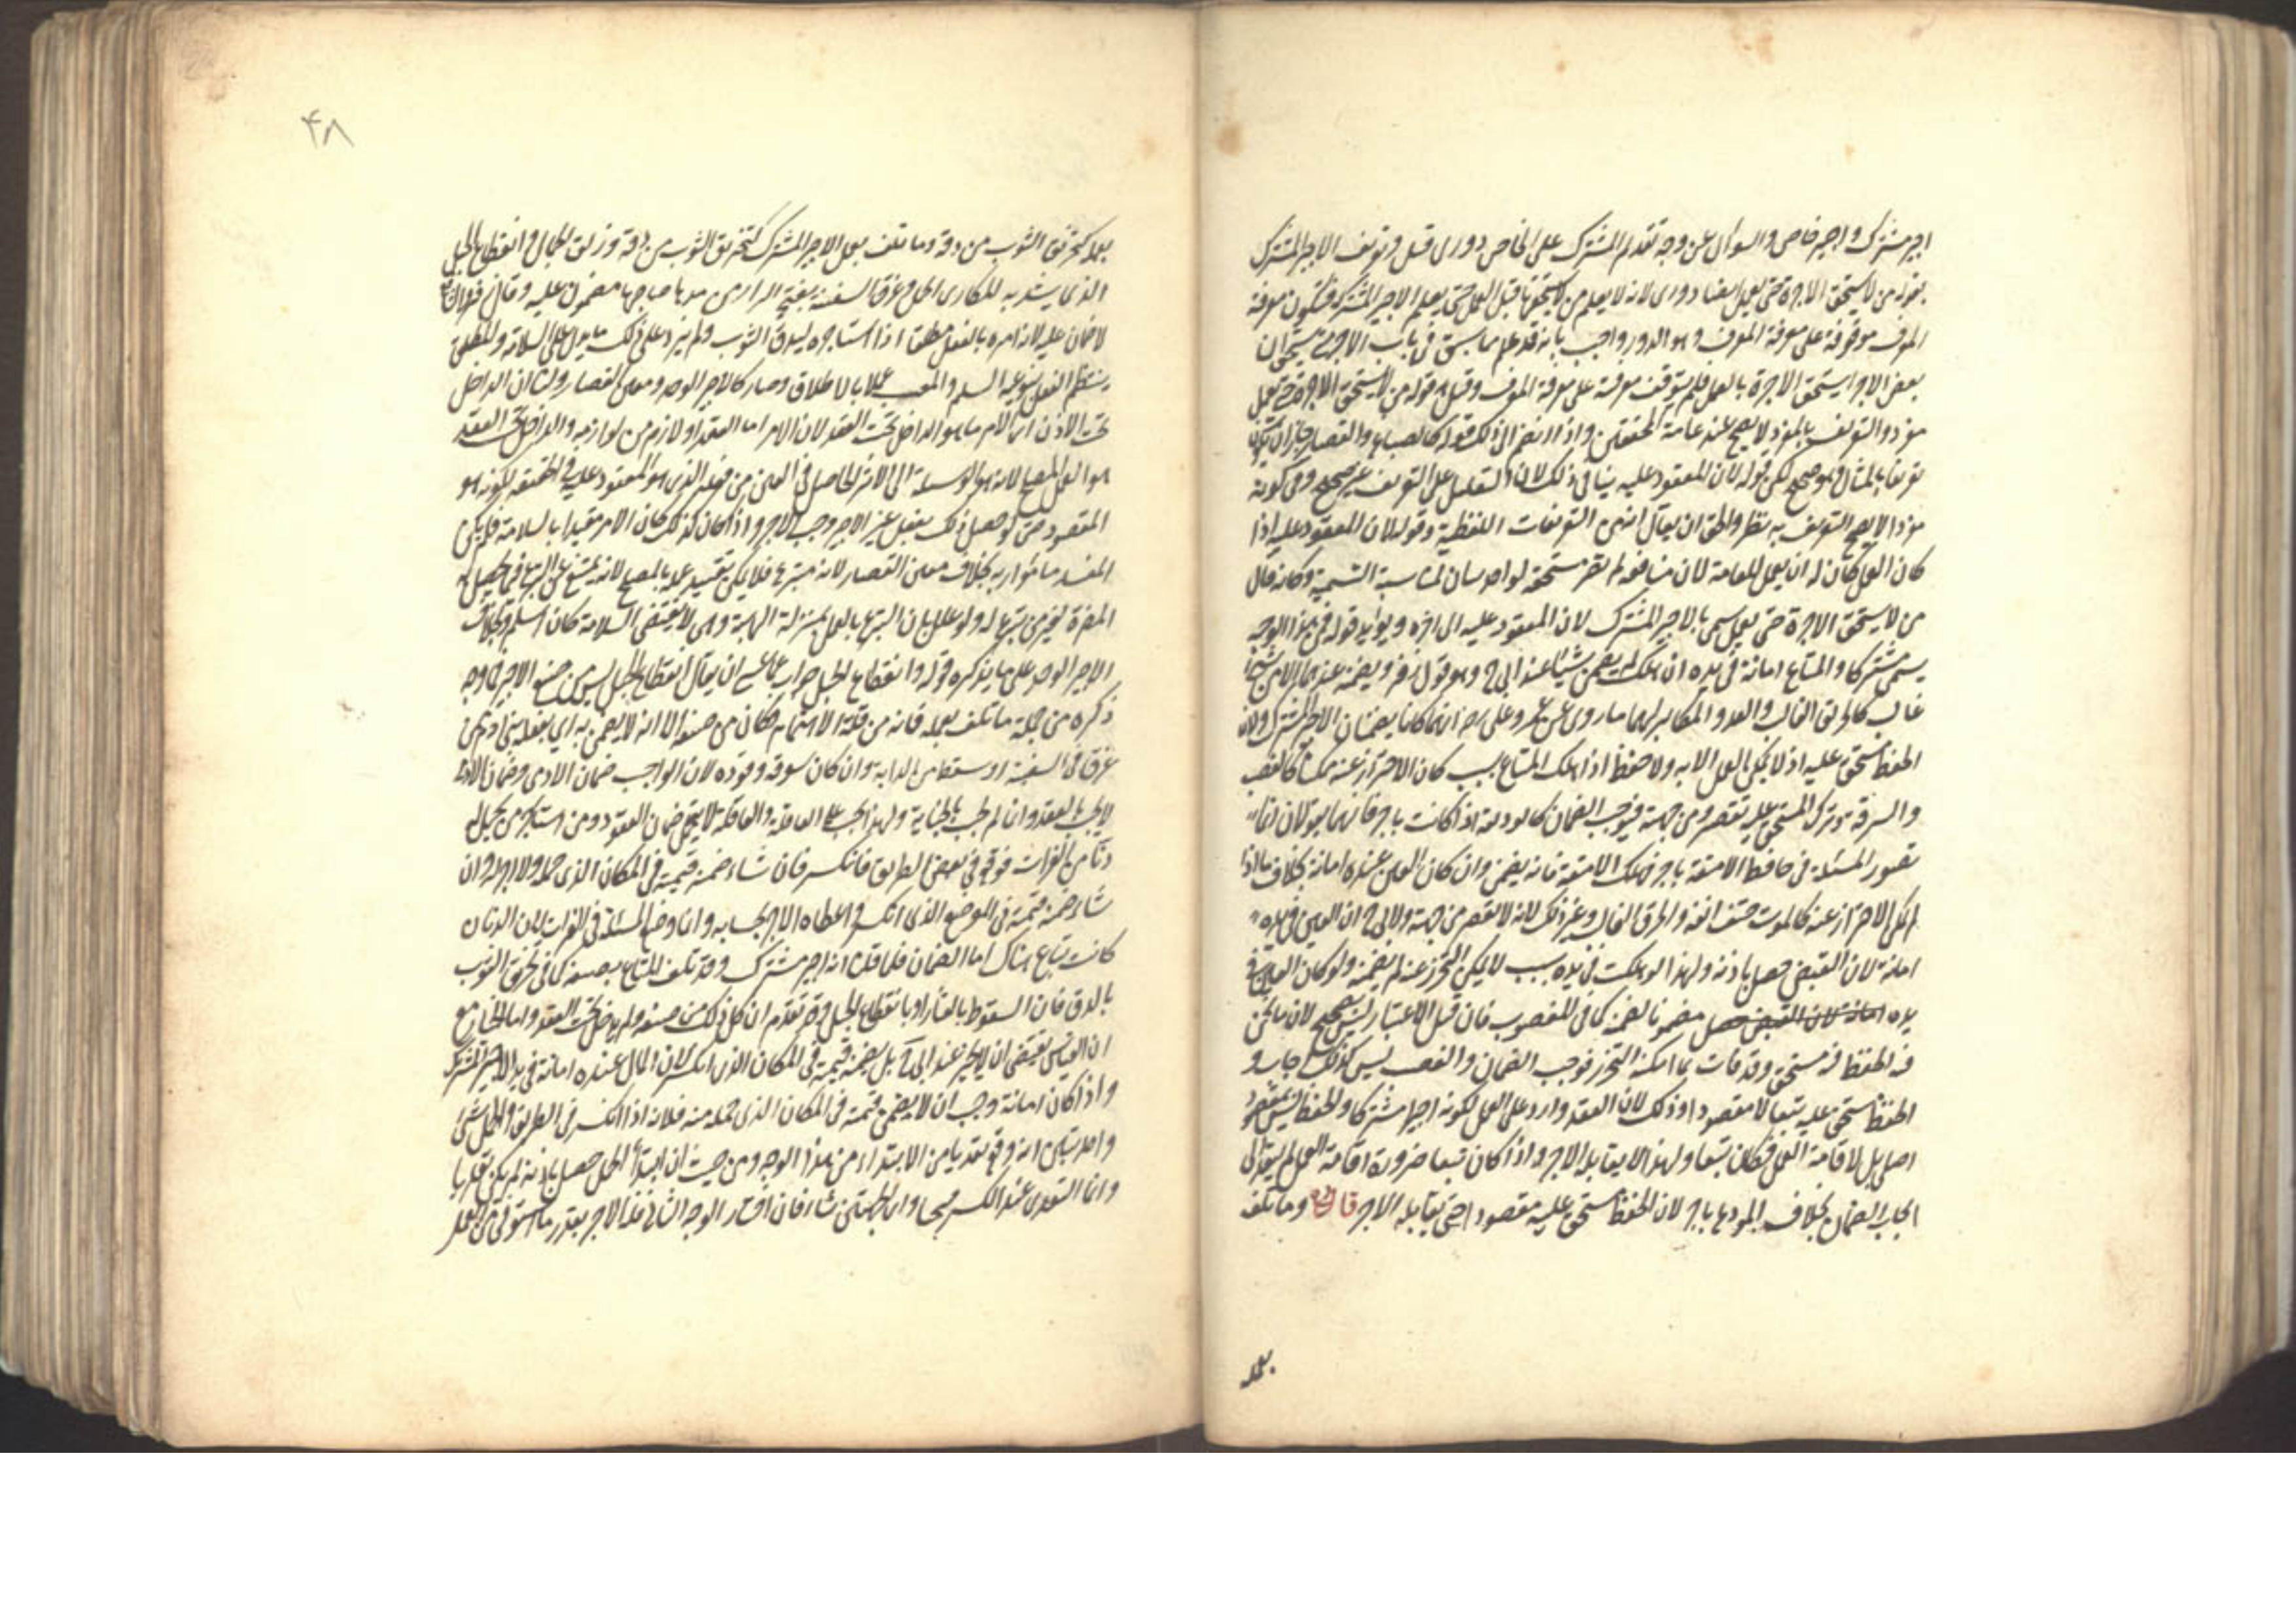 اجير مشترك واجير خاص والسؤال عن وجه تقديم المشترك على الخاص دورى قيل وتعريف الاجير المشترك
بقوله من لا يستحق الاجرة حتى يعمل ايضا دورى لانه لا يعلم من لا يستحقها قبل العمل حتى يعلم الاجير المشترك فتكون معرفة
المعرف موقوفة على معرفة المعرف وهو الدور واجيب بانه قد علم مما سبق في باب الاجر متى يستحق ان
بعض الاجراء يستحق الاجرة بالعمل فلم يتوقف معرفته على معرفة المعرف وقيل قوله من لا يستحق الاجرة حتى يعمل
مفرد والتعريف بالمفرد لا يصح عند عامة المحققين واذا انضم الى ذلك قوله كالصباغ والقصار جاز ان يكون
تعريفا بالمثال وهو صحيح لكن قوله لان المعقود عليه ينافي ذلك لان التعليل على التعريف غير صحيح وفي كونه
مفردا لا يصح التعريف به نظر والحق ان يقال انه من التعريفات اللفظية وقوله لان المعقود عليه اذا
كان العمل كان له ان يعمل للعامة لان منافعه لم تصر مستحقة لواحد بيان لمناسبة التسمية وكانه قال
من لا يستحق الاجرة حتى يعمل يسمى بالاجير المشترك لان المعقود عليه الى اخره ويؤيده قوله فمن هذا الوجه
يسمى مشتركا والمتاع امانة في يده ان هلك لم يضمن شيئا عند ابى ح وهو قول زفر ويضمنه عندهما الا من شئ
غالب كالحريق الغالب والعدو المكابر لهما ما روى عن عمر وعلى رض انهما كانا يضمنان الاجير المشترك ولان
الحفظ مستحق عليه اذ لا يمكن العمل الا به ولا حفظ اذا هلك المتاع بسبب كان الاحتراز عنه ممكنا كالغصب
والسرقة وترك المستحق عليه تقصير من جهته فيوجب الضمان كالوديعة اذا كانت باجر فانهما يقولان لنا
تصور المسئلة في حافظ الامتعة باجر فهلك الامتعة فانه يضمن وان كان العين عنده امانة بخلاف ما اذا
لم يمكن الاحتراز عنه كالموت حتف انفه والحرق الغالب وغير ذلك لانه لا تقصير من جهته ولابى ح ان العين في يده
امانة لان القبض حصل باذنه ولهذا لو هلكت في يده بسبب لا يمكن التحرز عنه لم يضمنه ولو كان العين في
يده امانة لان القبض حصل مضمونا لضمنه كما في المغصوب فان قيل الاعتبار ليس بصحيح لان ما نحن
فيه الحفظ فيه مستحق وقد فات بما امكنه التحرز فوجب الضمان والغصب ليس كذلك اجاب و
الحفظ مستحق عليه تبعا لا مقصودا وذلك لان العقد وارد على العمل لكونه اجيرا مشتركا والحفظ ليس بمقصود
اصلى بل لاقامة العمل فكان تبعا ولهذا لا يقابله الاجر واذا كان تبعا ضرورة اقامة العمل لم يتعد الى
ايجاب الضمان بخلاف المودع باجر لان الحفظ مستحق عليه مقصودا حتى يقابله الاجر قال وما تلف
بعمله
۴۸
بعمله كتخريق الثوب من دقه وما تلف بعمل الاجير المشترك كتخريق الثوب من دقه وزلق الحمال وانقطاع الحبل
الذى يشد به المكارى الحمل وغرق السفينة بفتح الراء من مدها صاحبها مضمون عليه وقال زفر والشافعى
لا ضمان عليه لانه امره بالفعل مطلقا اذ استاجره ليدق الثوب ولم يزد على ذلك ما يدل على السلامة والمطلق
ينتظم الفعل بنوعيه السليم والمعيب عملا بالاطلاق وصار كالاجير الوحد ومعين القصار ولنا ان الداخل
تحت الاذن انما الامر ما هو الداخل تحت العقد لان الامر اما العقد او لازم من لوازمه والداخل تحت العقد
هو العمل المصلح لانه هو الوسيلة الى الاثر الحاصل في العين من فعله الذى هو المعقود عليه في الحقيقة لكونه هو
المقصود حتى لو حصل ذلك بفعل غير الاجير وجب الاجر واذا كان كذلك كان الامر مقيدا بالسلامة فلم يكن
المفسد مأمورا به بخلاف معين القصار لانه متبرع فلا يمكن تقييد عمله بالمصلح لانه يمتنع عن التبرع في تحصيل
المضرة لغير من تبرع له ولو علل بان التبرع بالعمل بمنزلة الهبة وهى لا يقتضى السلامة كان اسلم وبخلاف
الاجير الوحد على ما يذكره قوله وانقطاع الحبل جواب عما عسى ان يقال انقطاع الحبل ليس من صنع الاجير فما وجه
ذكره من جملة ما تلف بعمله فانه من قلة الاهتمام فكان من صنعه الا انه لا يضمن به اى بفعله بنى ادم ممن
غرق في السفينة او سقط من الدابة وان كان سوقه وقوده لان الواجب ضمان الادمى وضمان الادمى
لا يجب بالعقد وانما يجب بالجناية ولهذا يجب على العاقلة والعاقلة لا يتحمل ضمان العقود ومن استاجر من يحمل له
دنا من الفرات فوقع في بعض الطريق فانكسر فان شاء ضمنه قيمته في المكان الذى حمله ولا اجر له وان
شاء ضمنه قيمته في الموضع الذى انكسر واعطاه الاجر بحسابه وانما وضع المسئلة في الفرات لان الدنان
كانت تباع هناك اما الضمان فلما قلنا انه اجير مشترك وقد تلف المتاع بصنعه كما في تخرق الثوب
بالدق فان السقوط بالعثار او بانقطاع الحبل وقد تقدم ان كل ذلك من صنعه ولم يدخل تحت العقد واما الخيار مع
ان القياس يقتضى ان لا يخير عند ابى ح بل يضمنه قيمته في المكان الذى انكسر لان المال عنده امانة في يد الاجير المشترك
واذا كان امانة وجب ان لا يضمن قيمته في المكان الذى حمله منه فلانه اذا انكسر في الطريق والحمل شئ
واحد تبين انه وقع تعديا من الابتداء من هذا الوجه ومن حيث ان ابتداء الحمل حصل باذنه لم يكن تعديا
وانما التعدى عند الكسر فيميل الى اى الجهتين شاء فان اختار الوجه الثانى فله الاجر بقدر ما استوفى من العمل